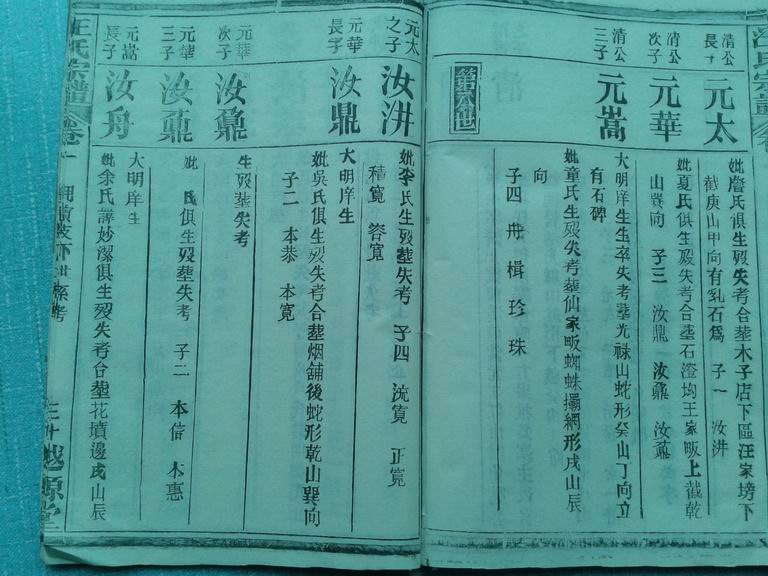 清公
長子
元太
妣詹氏俱生歿失考合塟木子店下區汪家塝下
截庚山甲向有乳石爲 子一 汝汫
清公
次子
元華
妣夏氏俱生歿失考合塟石澄均王家畈上截乾
山巽向 子三 汝鼎 汝鼐 汝鼒
清公
三子
元嵩
大明庠生生卒失考塟光祿山蛇形癸山丁向立
有石碑
妣童氏生歿失考塟仙家畈蜘蛛擱網形戌山辰
向
子四 舟 楫 珍 珠
第六世
元太
之子
汝汫
妣李氏生歿塟失考 子四 流寬 正寬
積寬 容寬
元華
長子
汝鼎
大明庠生
妣吳氏俱生歿失考合塟烟舖後蛇形乾山巽向
子二 本恭 本寬
元華
次子
汝鼐
生歿塟失考
元華
三子
汝鼒
妣 氏俱生歿塟失考 子二 本信 本惠
元嵩
長子
汝舟
大明庠生
妣余氏諱妙潔俱生歿失考合塟花墳邊戌山辰
汪氏宗譜 卷 世系考 越源堂
汪氏宗譜